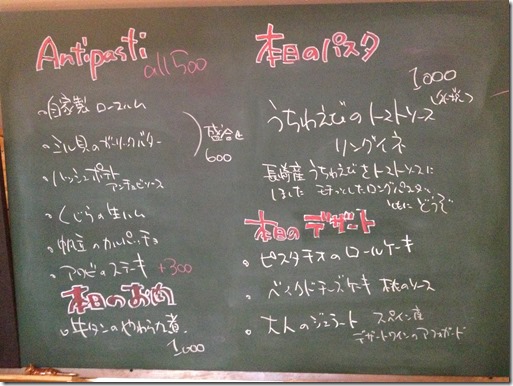 Antipasti
all 500
自家製 ロースハム
ミル貝のガーリックバター
ハッシュポテト
アンチョビソース
くじらの生ハム
帆立のカルパッチョ
アワビのステーキ +300
盛合せ
600
本日のお肉
牛タンのやわらか煮
1,000
本日のパスタ
1,000
うちわえびのトマトソース
リングイネ
長崎産 うちわえびをトマトソースに
しました モチッとしたロングパスタと
ともに どうぞ
本日のデザート
ピスタチオのロールケーキ
ベイクドチーズケーキ 桃のソース
大人のジェラート スペイン産
デザートワインのアフォガード